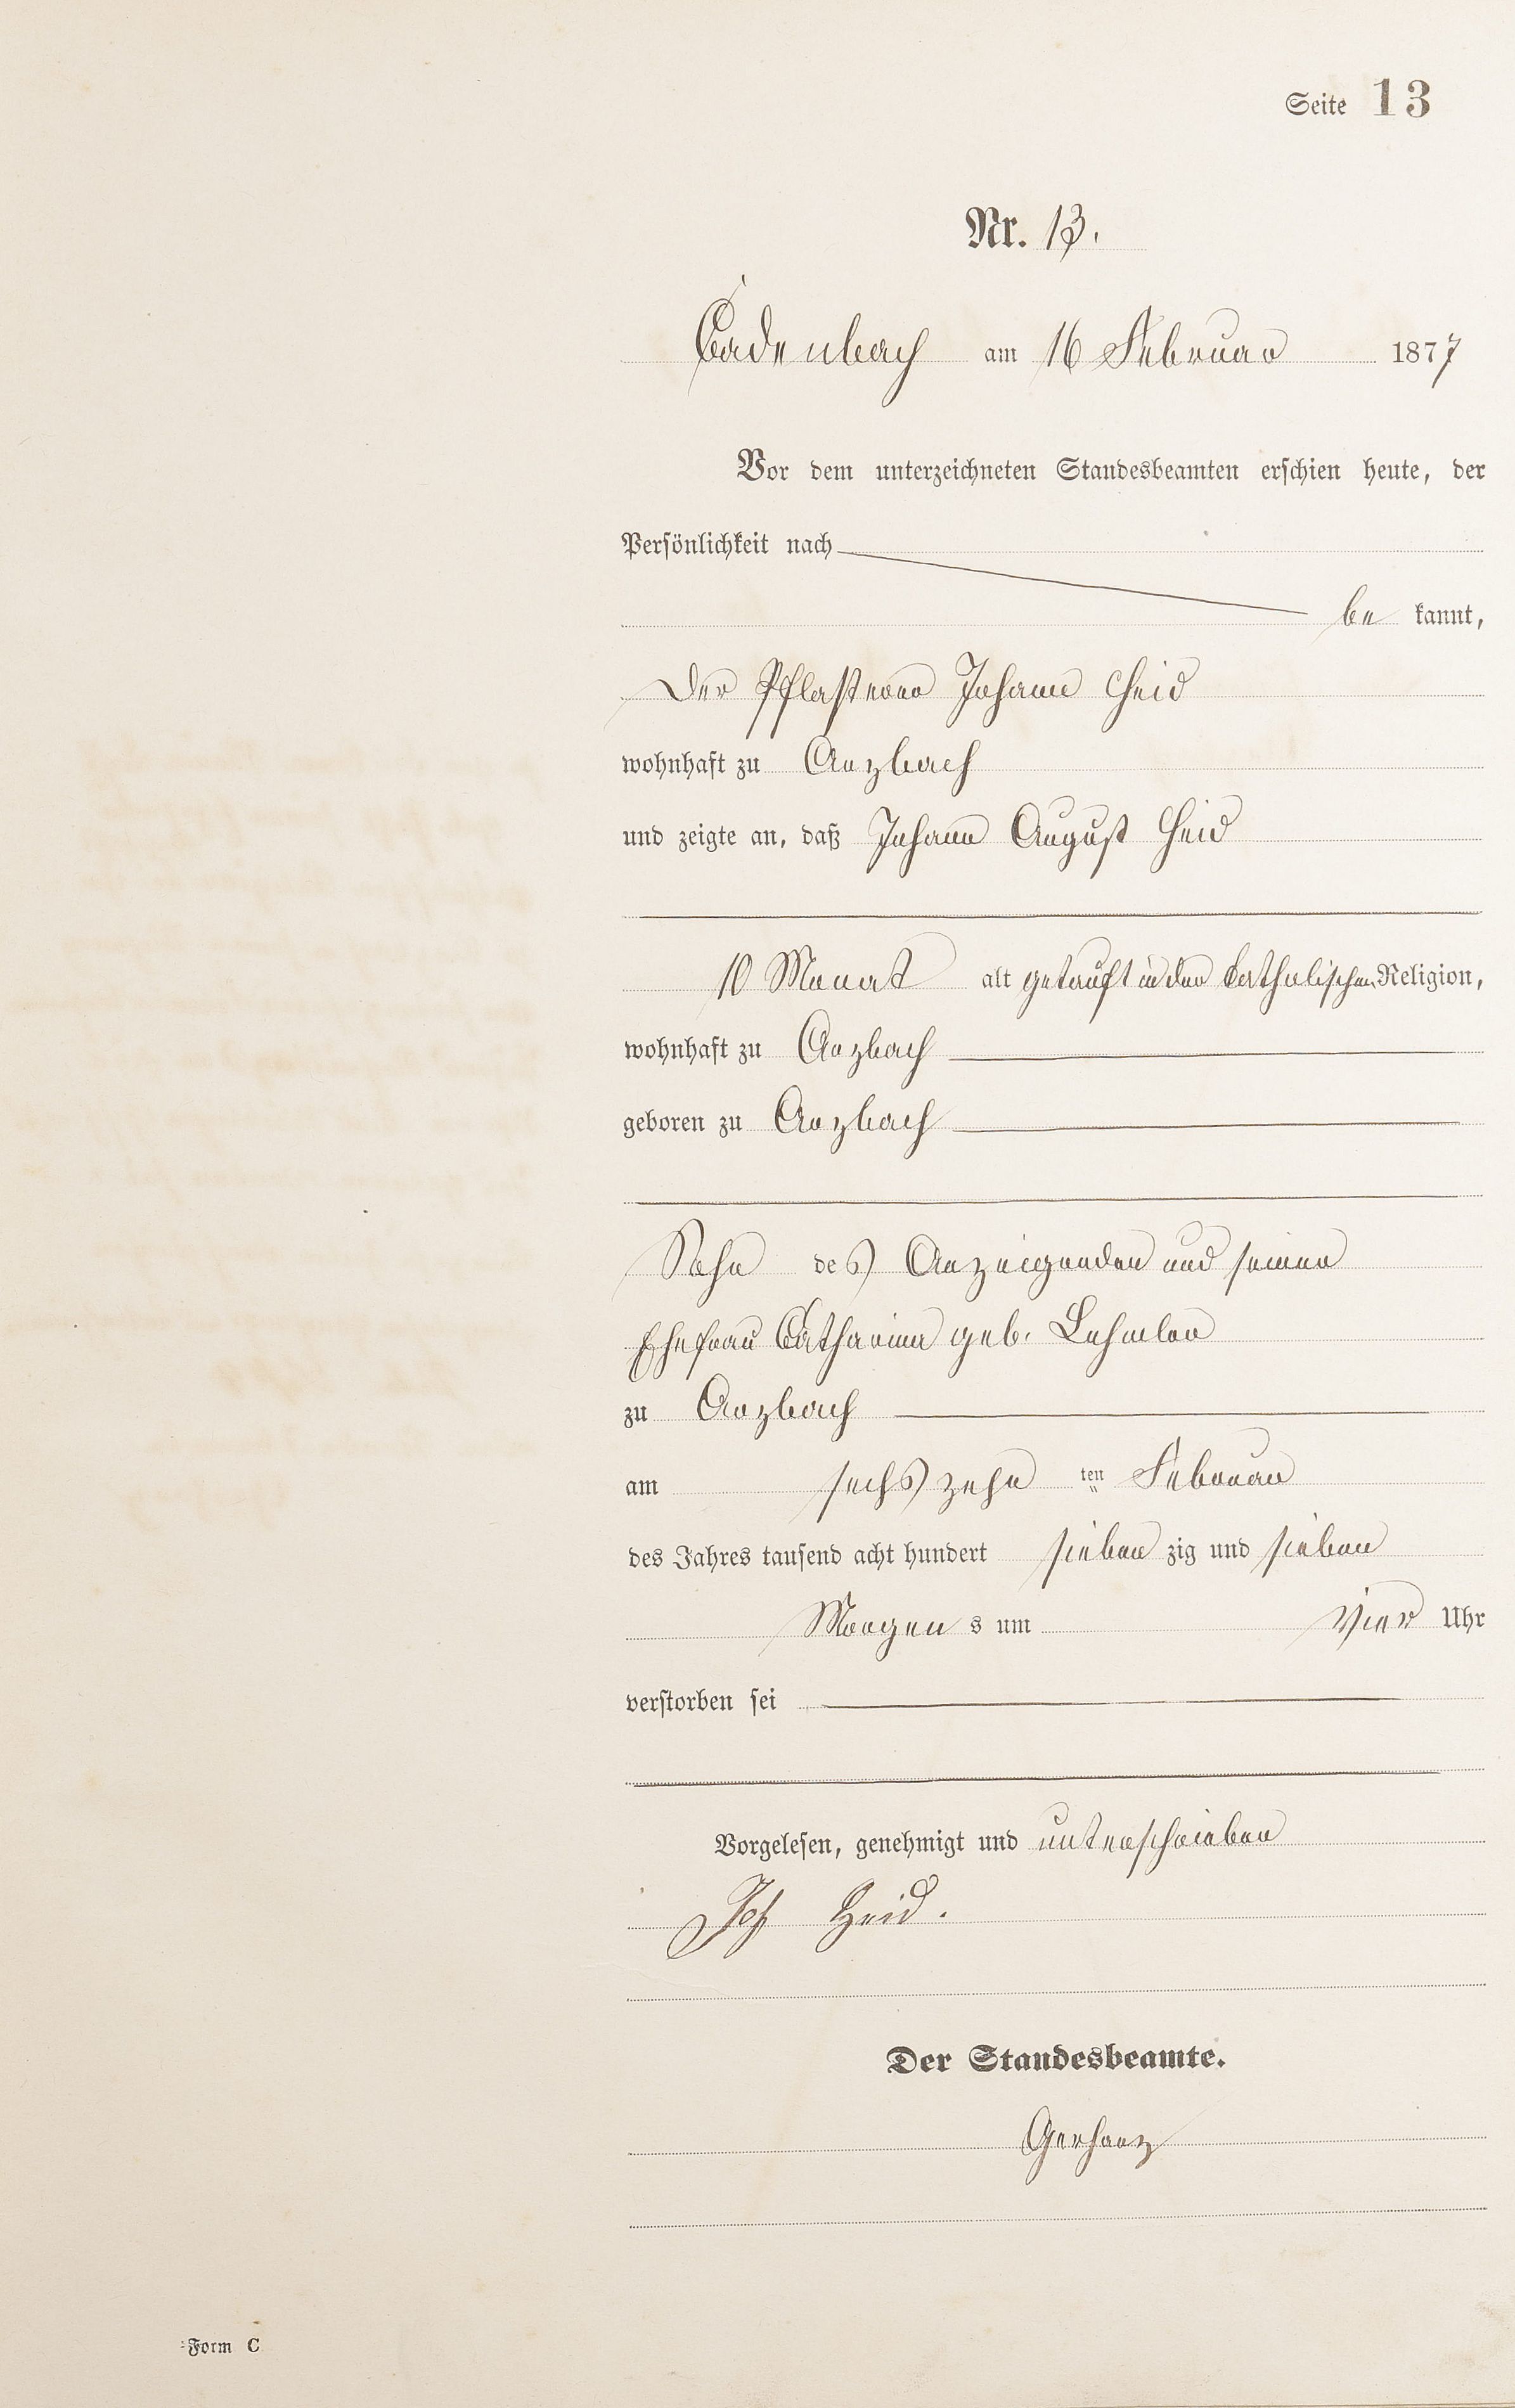 Seite 13
Nr. 13.
Cadenbach am 16 Februar 1877
Vor dem unterzeichneten Standesbeamten erschien heute, der
Persönlichkeit nach
be kannt,
der Pflasterer Johann Heid
wohnhaft zu Arzbach
und zeigte an, daß Johann August Heid
10 Monat alt getauft in der katholischen Religion,
wohnhaft zu Arzbach
geboren zu Arzbach
Sohn des Anzeigenden und seiner
Ehefrau Catharina geb. Lehmler
zu Arzbach
am sechszehn ten Februar
des Jahres tausend acht hundert sieben zig und sieben
Morgen s um vier Uhr
verstorben sei
Vorgelesen, genehmigt und unterschrieben
Joh Heid.
Der Standesbeamte.
Gerharz
Form C